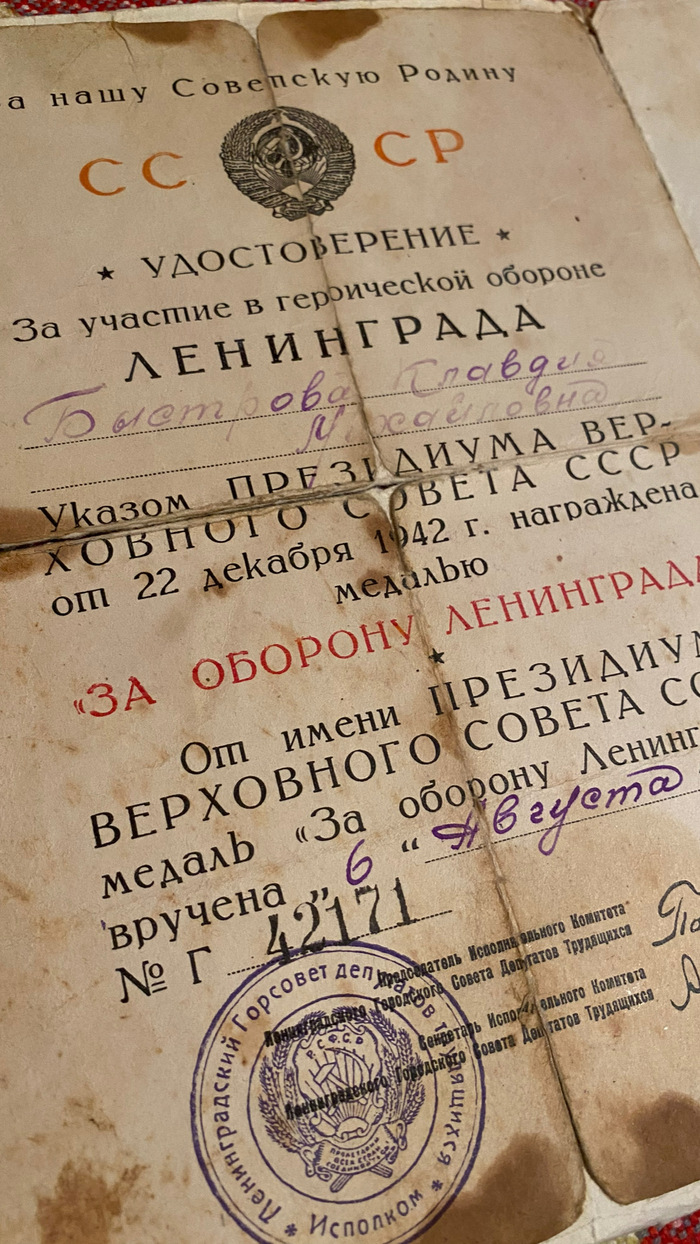 за нашу Советскую Родину
СССР
★ УДОСТОВЕРЕНИЕ ★
За участие в героической обороне
ЛЕНИНГРАДА
Быстрова Клавдия
Михайловна
Указом ПРЕЗИДИУМА ВЕР-
ХОВНОГО СОВЕТА СССР
от 22 декабря 1942 г. награждена
медалью
«ЗА ОБОРОНУ ЛЕНИНГРАДА
★
От имени ПРЕЗИДИУМ
ВЕРХОВНОГО СОВЕТА СС
медаль «За оборону Ленинг
вручена „ 6 “ Августа
№ Г 42171
Председатель Исполнительного Комитета
Ленинградского Городского Совета Депутатов Трудящихся
Секретарь Исполнительного Комитета
Ленинградского Городского Совета Депутатов Трудящихся
Ленинградский Горсовет депутатов трудящихся * Исполком *
Р.С.Ф.С.Р
ПРОЛЕТАРИИ ВСЕХ СТРАН СОЕДИНЯЙТЕСЬ